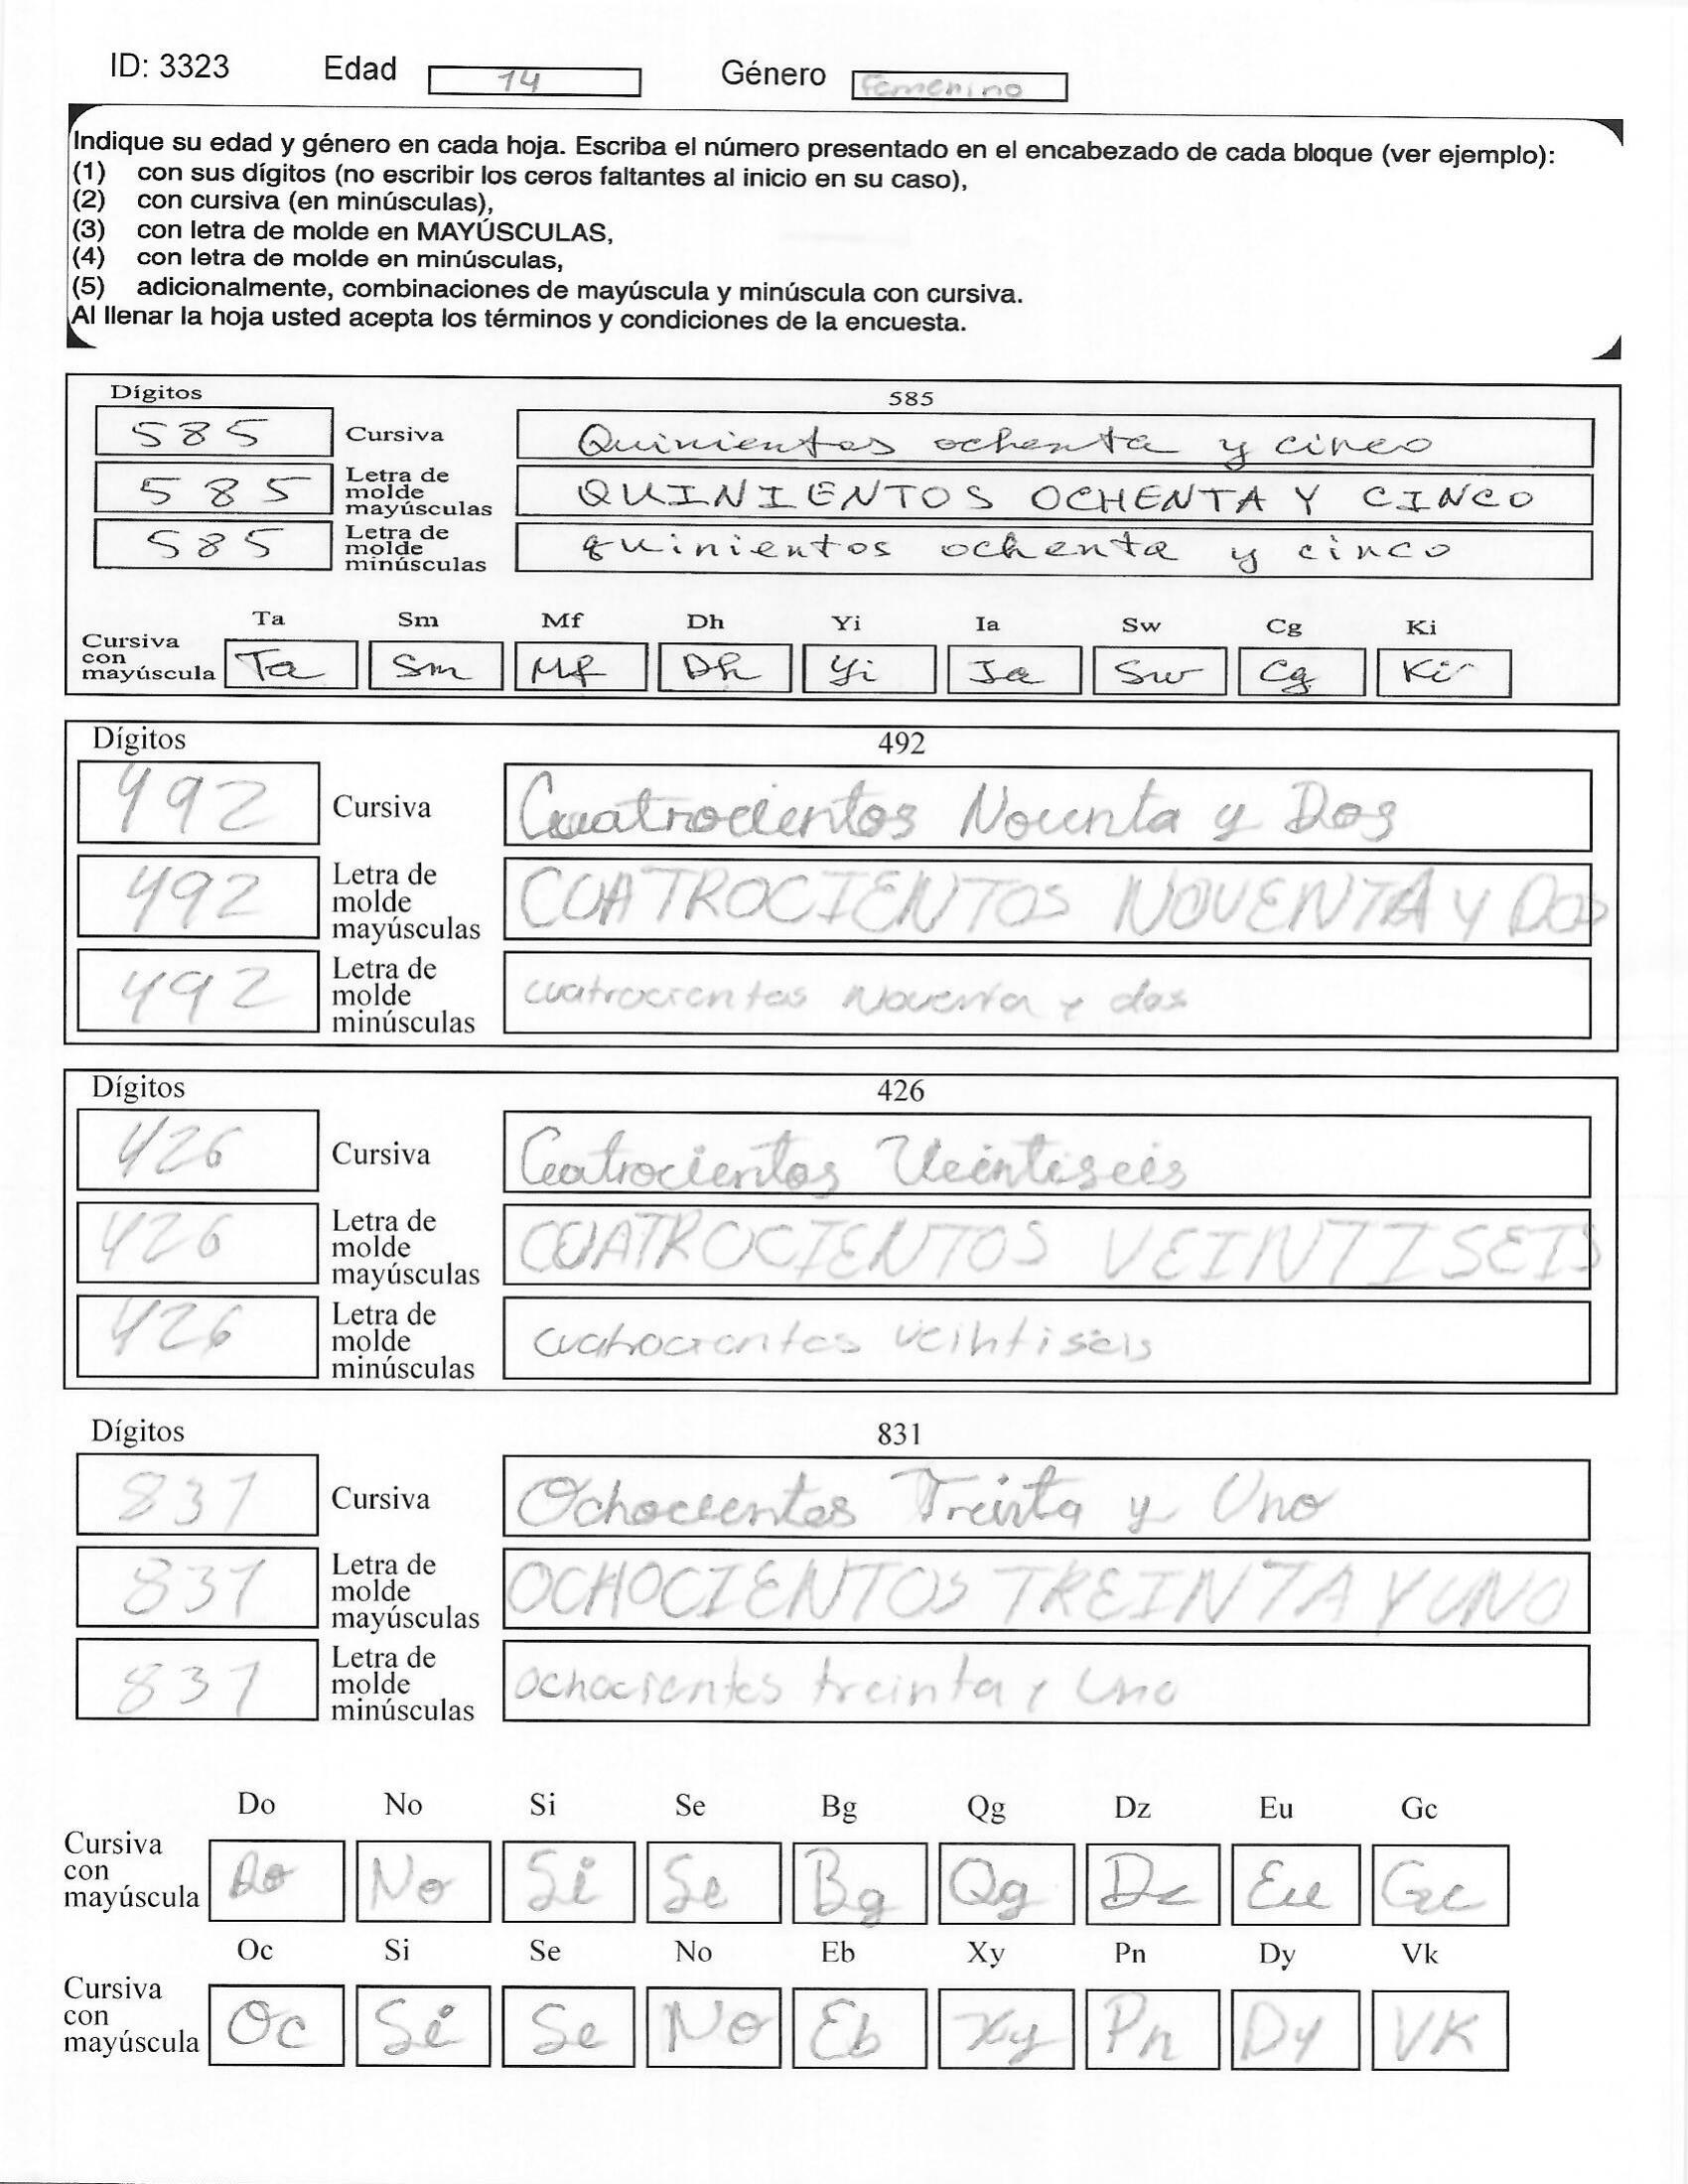 ID: 3323 Edad 14 Género Femenino
Indique su edad y género en cada hoja. Escriba el número presentado en el encabezado de cada bloque (ver ejemplo):
(1) con sus dígitos (no escribir los ceros faltantes al inicio en su caso),
(2) con cursiva (en minúsculas),
(3) con letra de molde en MAYÚSCULAS,
(4) con letra de molde en minúsculas,
(5) adicionalmente, combinaciones de mayúscula y minúscula con cursiva.
Al llenar la hoja usted acepta los términos y condiciones de la encuesta.
Dígitos 585
585 Cursiva Quinientos ochenta y cinco
585 Letra de molde mayúsculas QUINIENTOS OCHENTA Y CINCO
585 Letra de molde minúsculas quinientos ochenta y cinco
Ta Sm Mf Dh Yi Ia Sw Cg Ki
Cursiva con mayúscula Ta Sm Mf Dh Yi Ia Sw Cg Ki
Dígitos 492
492 Cursiva Cuatrocientos Nounta y Dos
492 Letra de molde mayúsculas CUATROCIENTOS NOVENTA Y DOS
492 Letra de molde minúsculas cuatrocientos noventa y dos
Dígitos 426
426 Cursiva Ceatrocientos Veintiseis
426 Letra de molde mayúsculas CUATROCIENTOS VEINTISEIS
426 Letra de molde minúsculas cuatrocientos veintiseis
Dígitos 831
831 Cursiva Ochocientos Treinta y Uno
831 Letra de molde mayúsculas OCHOCIENTOS TREINTA Y UNO
831 Letra de molde minúsculas ochocientos treinta y uno
Do No Si Se Bg Qg Dz Eu Gc
Cursiva con mayúscula Do No Si Se Bg Qg Dz Eu Gc
Oc Si Se No Eb Xy Pn Dy Vk
Cursiva con mayúscula Oc Si Se No Eb Xy Pn Dy Vk